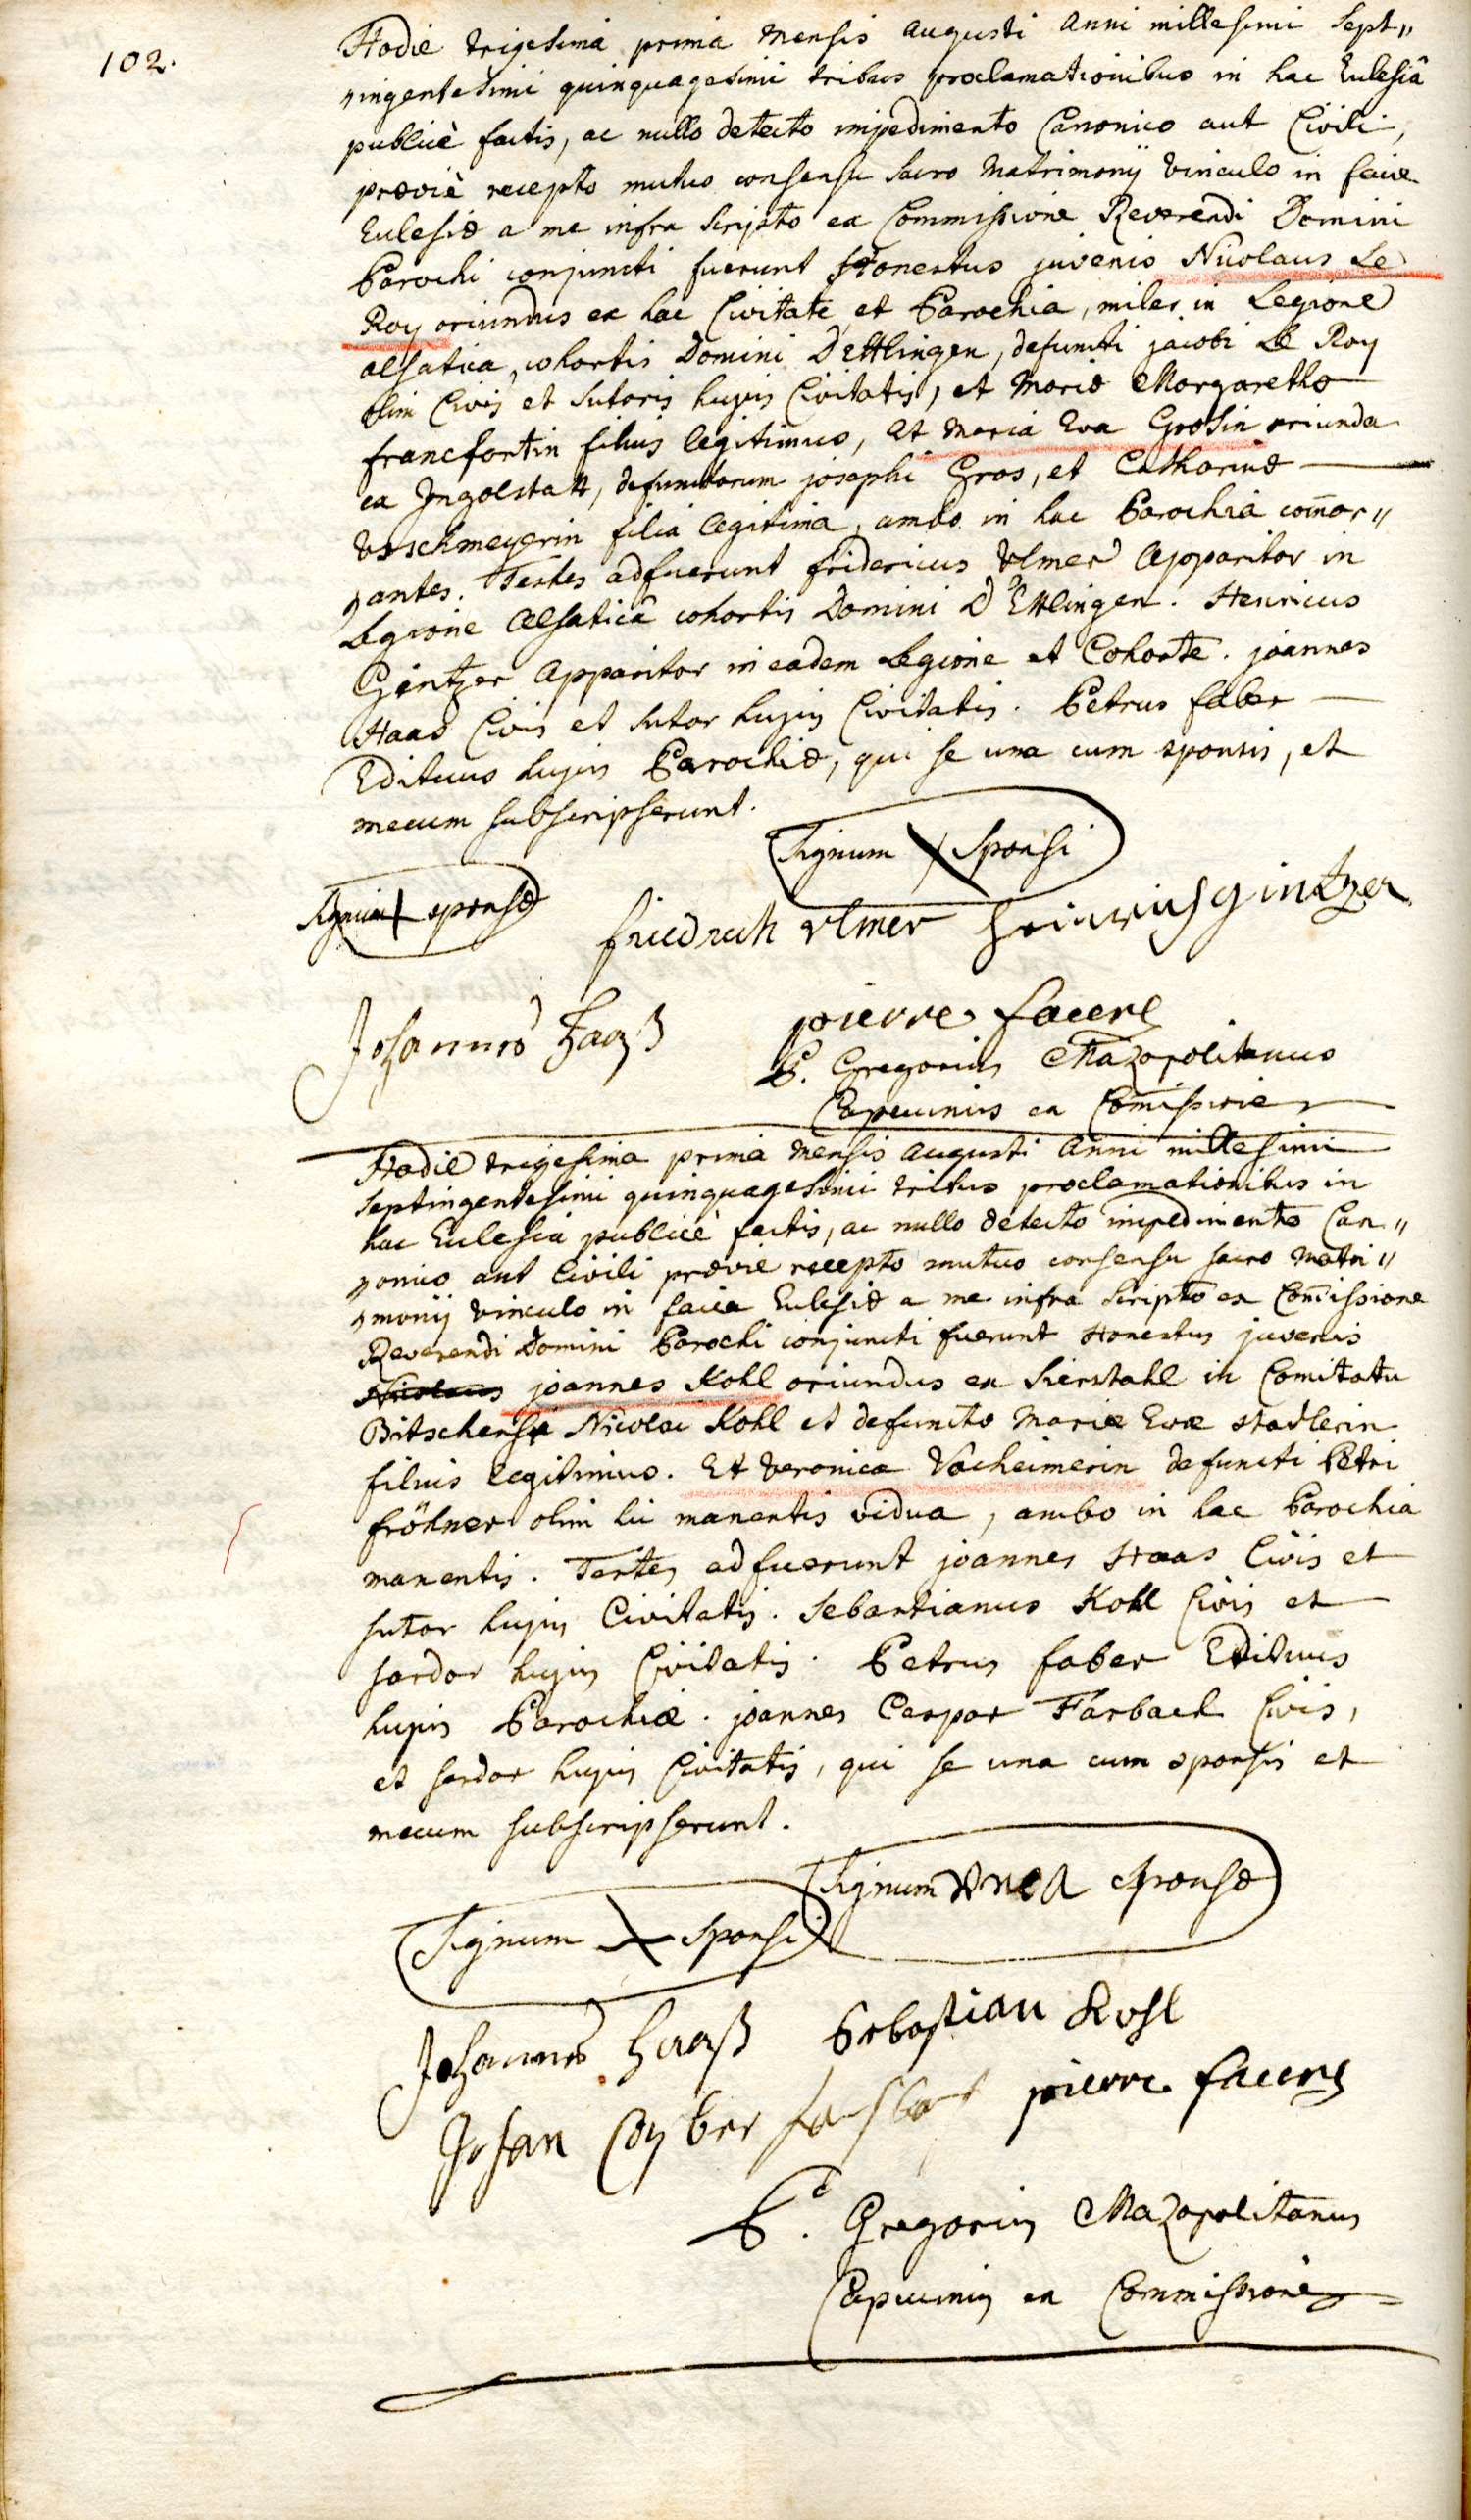 102.
Hodie trigesima prima mensis augusti anni millesimi sept„
„ingentesimi quinquagesimi tribus proclamationibus in hac Eclesiâ
publicè factis, ac nullo detecto impedimento Canonico aut Civili,
præviè recepto mutuo consensu sacro Matrimonÿ vinculo in facie
Eclesiæ a me infra scripto ex Commissione Reverendi Domini
Parochi conjuncti fuerunt Honestus juvenis Nicolaus Le
Roy oriundus ex hac Civitate et Parochia, miles in Legione
alsatica, cohortis Domini D'Ettlingen, defuncti jacobi Le Roy
olim Civis et sutoris hujus Civitatis, et Mariæ Margarethæ
francfortin filius legitimus, et Maria Eva Grosin oriunda
ex Ingolstatt, defunctorum josephi Gros, et Catharinæ
filia legitima, ambo in hac Parochia com̄or„
„antes. Testes adfuerunt fridericus Ulmer Apparitor in
Legione Alsaticâ cohortis Domini D'Ettlingen. Henricus
Gintzer Apparitor in eadem Legione et Cohorte. joannes
Haas Civis et sutor hujus Civitatis. Petrus faber
Edituus hujus Parochiæ, qui se una cum sponsis, et
mecum subscripserunt.
Signum Sponsi
Signum sponsæ
friedrich Ulmer Heinrich gintzer
Johannes Haaß pierre facere
P. Gregorius Mazopolitanus
Capucinus ex Com̄issione
Hodie trigesima prima mensis augusti anni millesimi
septingentesimi quinquagesimi tribus proclamationibus in
hac Eclesia publicè factis, ac nullo detecto impedimento Can„
„onico aut Civili prævie recepto mutuo consensu sacro matri„
„monij vinculo in facie Eclesiæ a me infra scripto ex Com̄issione
Reverendi Domini Parochi conjuncti fuerunt Honestus juvenis
Nicolaus joannes Kohl oriundus ex Sierstahl in Comitatu
Bitschensi Nicolai Kohl et defunctæ Mariæ Evæ stadlerin
filius legitimus. Et veronica Vacheimerin defuncti Petri
fröhner olim hic manentis vidua, ambo in hac Parochia
manentis. Testes adfuerunt joannes Haas Civis et
sutor hujus Civitatis. Sebastianus Kohl Civis et
sardor hujus Civitatis. Petrus faber Edituus
hujus Parochiæ. joannes Caspar Farback Civis,
et sardor hujus Civitatis, qui se una cum sponsis et
mecum subscripserunt.
Signum sponsæ
Signum sponsi
Johannes Haaß Sebastian Kohl
Johan pierre facere
P. Gregorius Mazopolitanus
Capucinus ex Commissione